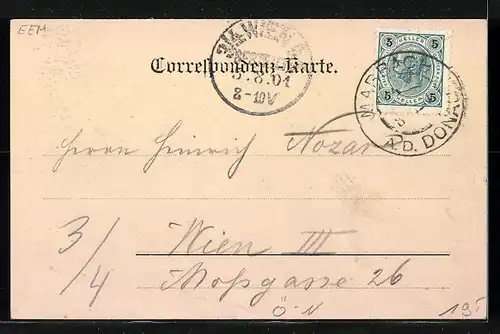 EEM
WIEN
8.01
8-10V
Correspondenz-Karte.
5 HELLER 5
5 5
MARBACH
A.D. DONAU
Herrn Heinrich Nozar
3/4
Wien III
Mohsgasse 26
Ö-N